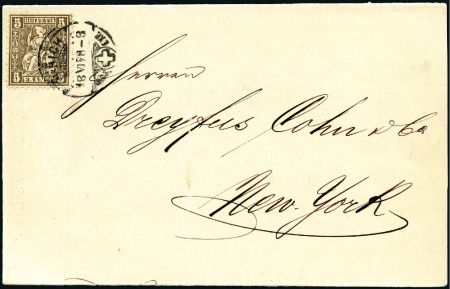 5 HELVETIA 5
FRANCO
18 VI 78 - 8
Herren
Dreyfus Cohn & Co
New-York